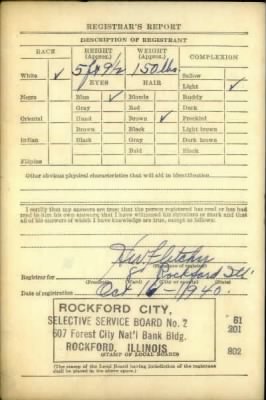 REGISTRAR'S REPORT
DESCRIPTION OF REGISTRANT
RACE HEIGHT (Approx.) WEIGHT (Approx.) COMPLEXION
White ✓ 5 ft 9 1/2 150 lbs. Sallow
EYES HAIR Light ✓
Negro Blue ✓ Blonde Ruddy
Gray Red Dark
Oriental Hazel Brown ✓ Freckled
Brown Black Light brown
Indian Black Gray Dark brown
Bald Black
Filipino
Other obvious physical characteristics that will aid in identification
I certify that my answers are true; that the person registered has read or has had
read to him his own answers; that I have witnessed his signature or mark and that
all of his answers of which I have knowledge are true, except as follows:
Fletcher
(Signature of registrar)
Registrar for 8 Rockford Ill
(Precinct) (Ward) (City or county) (State)
Date of registration Oct 16 - 1940.
ROCKFORD CITY,
SELECTIVE SERVICE BOARD No. 2 61
607 Forest City Nat'l Bank Bldg. 201
ROCKFORD, ILLINOIS 802
(STAMP OF LOCAL BOARD)
(The stamp of the Local Board having jurisdiction of the registrant
shall be placed in the above space.)